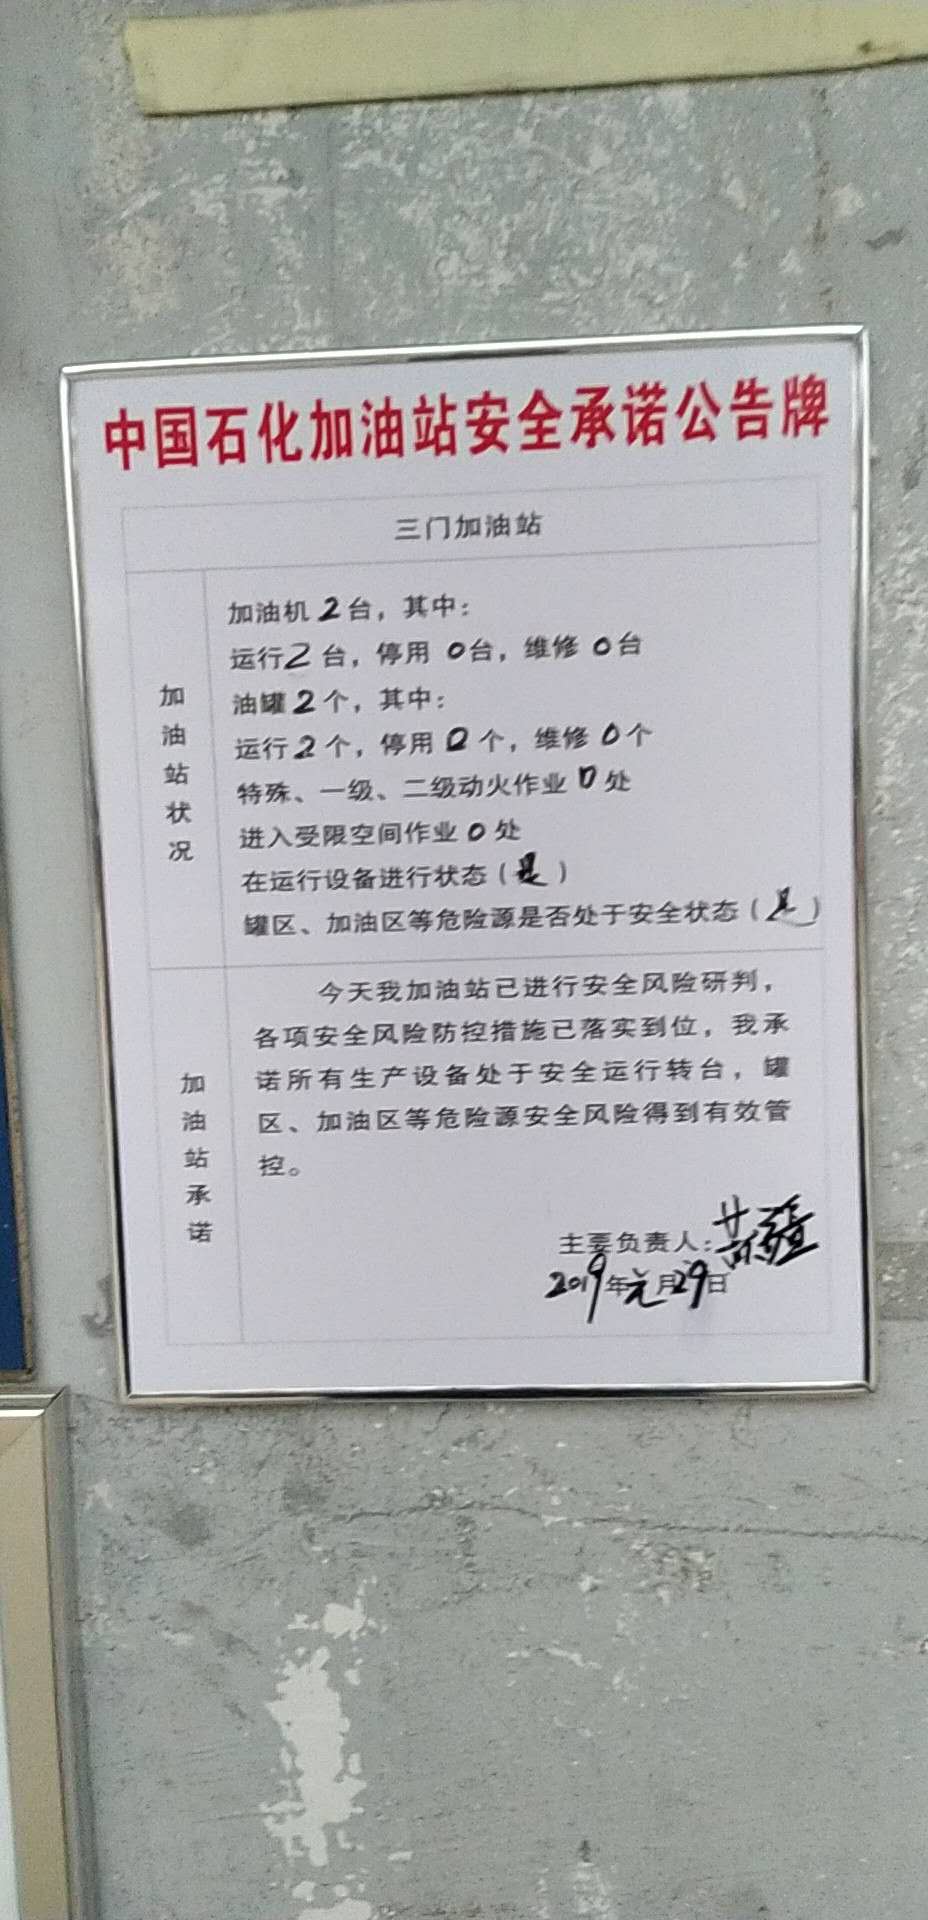 中国石化加油站安全承诺公告牌
三门加油站
加油站状况
加油机 2 台，其中：
运行 2 台，停用 0 台，维修 0 台
油罐 2 个，其中：
运行 2 个，停用 0 个，维修 0 个
特殊、一级、二级动火作业 0 处
进入受限空间作业 0 处
在运行设备进行状态（是）
罐区、加油区等危险源是否处于安全状态（是）
加油站承诺
今天我加油站已进行安全风险研判，
各项安全风险防控措施已落实到位，我承
诺所有生产设备处于安全运行转台，罐
区、加油区等危险源安全风险得到有效管
控。
主要负责人：
2019年元月29日